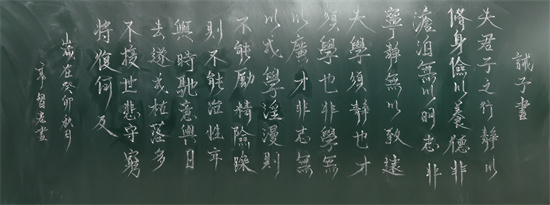 誡子書
夫君子之行靜以
修身儉以養德非
澹泊無以明志非
寧靜無以致遠
夫學須靜也才
須學也非學無
以廣才非志無
以成學淫漫則
不能勵精險躁
則不能治性年
與時馳意與日
去遂成枯落多
不接世悲守窮
將復何及
歲在癸卯秋日
書